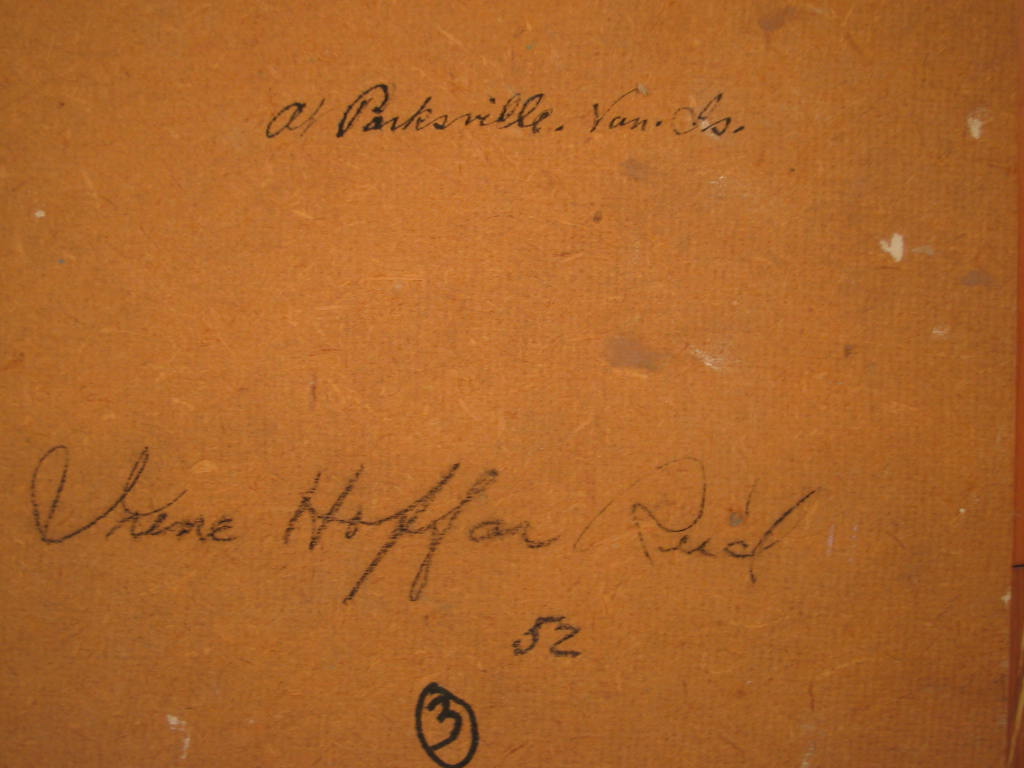 At Parksville. Van. Is.
Irene Hoffar Reid
52
3